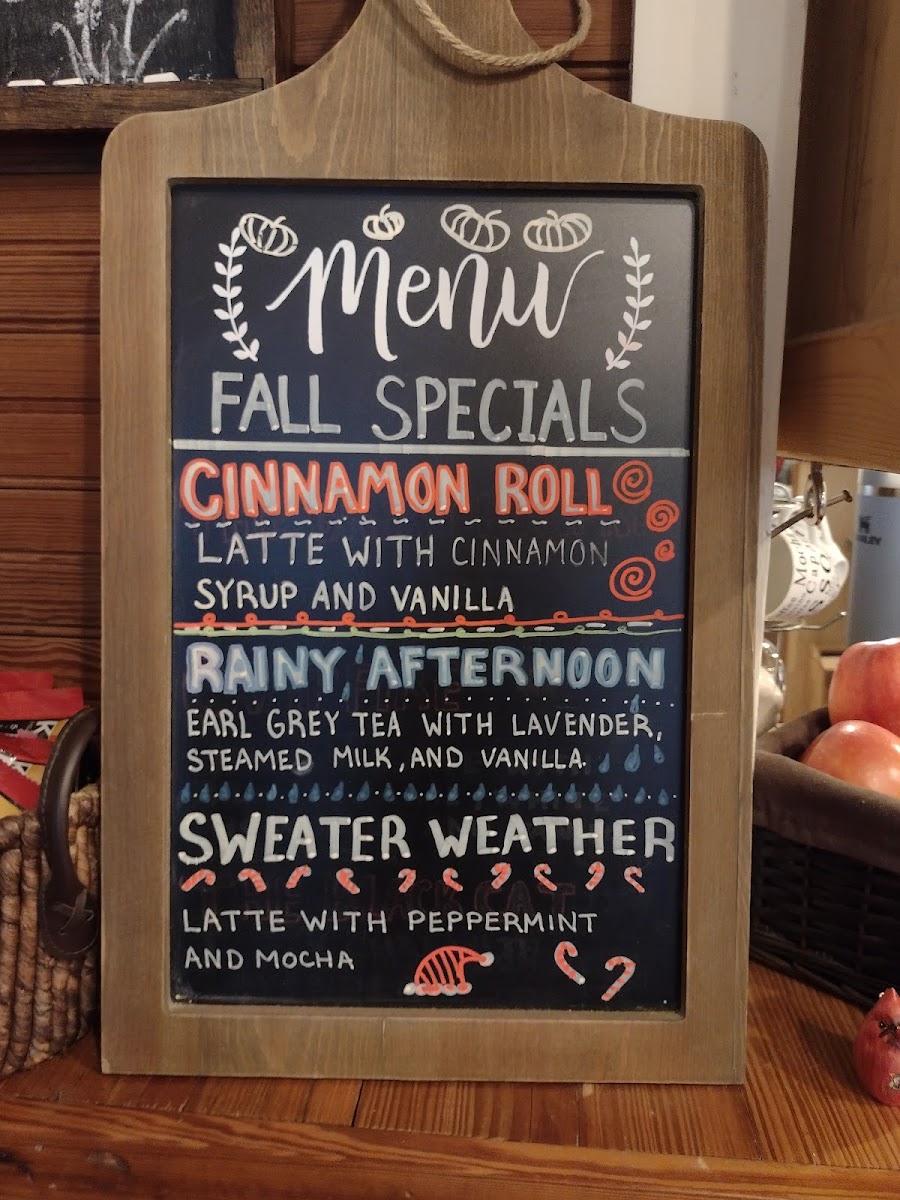 Menu
FALL SPECIALS
CINNAMON ROLL
LATTE WITH CINNAMON
SYRUP AND VANILLA
RAINY AFTERNOON
EARL GREY TEA WITH LAVENDER,
STEAMED MILK, AND VANILLA.
SWEATER WEATHER
LATTE WITH PEPPERMINT
AND MOCHA